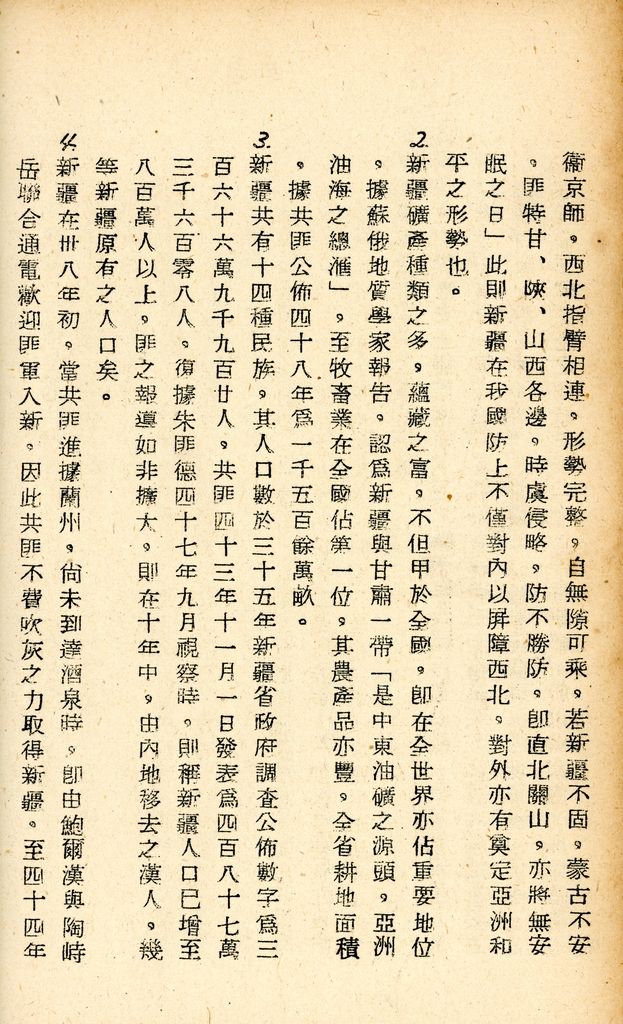 衞京師，西北指臂相連，形勢完整，自無隙可乘，若新疆不固，蒙古不安
，匪特甘、陝、山西各邊，時虞侵略，防不勝防，卽直北關山，亦將無安
眠之日」此則新疆在我國防上不僅對內以屏障西北，對外亦有奠定亞洲和
平之形勢也。
2.新疆礦產種類之多，蘊藏之富，不但甲於全國，卽在全世界亦佔重要地位
，據蘇俄地質學家報告，認爲新疆與甘肅一帶「是中東油礦之源頭，亞洲
油海之總滙」，至牧畜業在全國佔第一位，其農產品亦豐，全省耕地面積
，據共匪公佈四十八年爲一千五百餘萬畝。
3.新疆共有十四種民族，其人口數於三十五年新疆省政府調查公佈數字爲三
百六十六萬九千九百廿人，共匪四十三年十一月一日發表爲四百八十七萬
三千六百零八人，復據朱匪德四十七年九月視察時，則稱新疆人口已增至
八百萬人以上，匪之報導如非擴大，則在十年中，由內地移去之漢人，幾
等新疆原有之人口矣。
4.新疆在卅八年初，當共匪進據蘭州，尙未到達酒泉時，卽由鮑爾漢與陶峙
岳聯合通電歡迎匪軍入新，因此共匪不費吹灰之力取得新疆。至四十四年